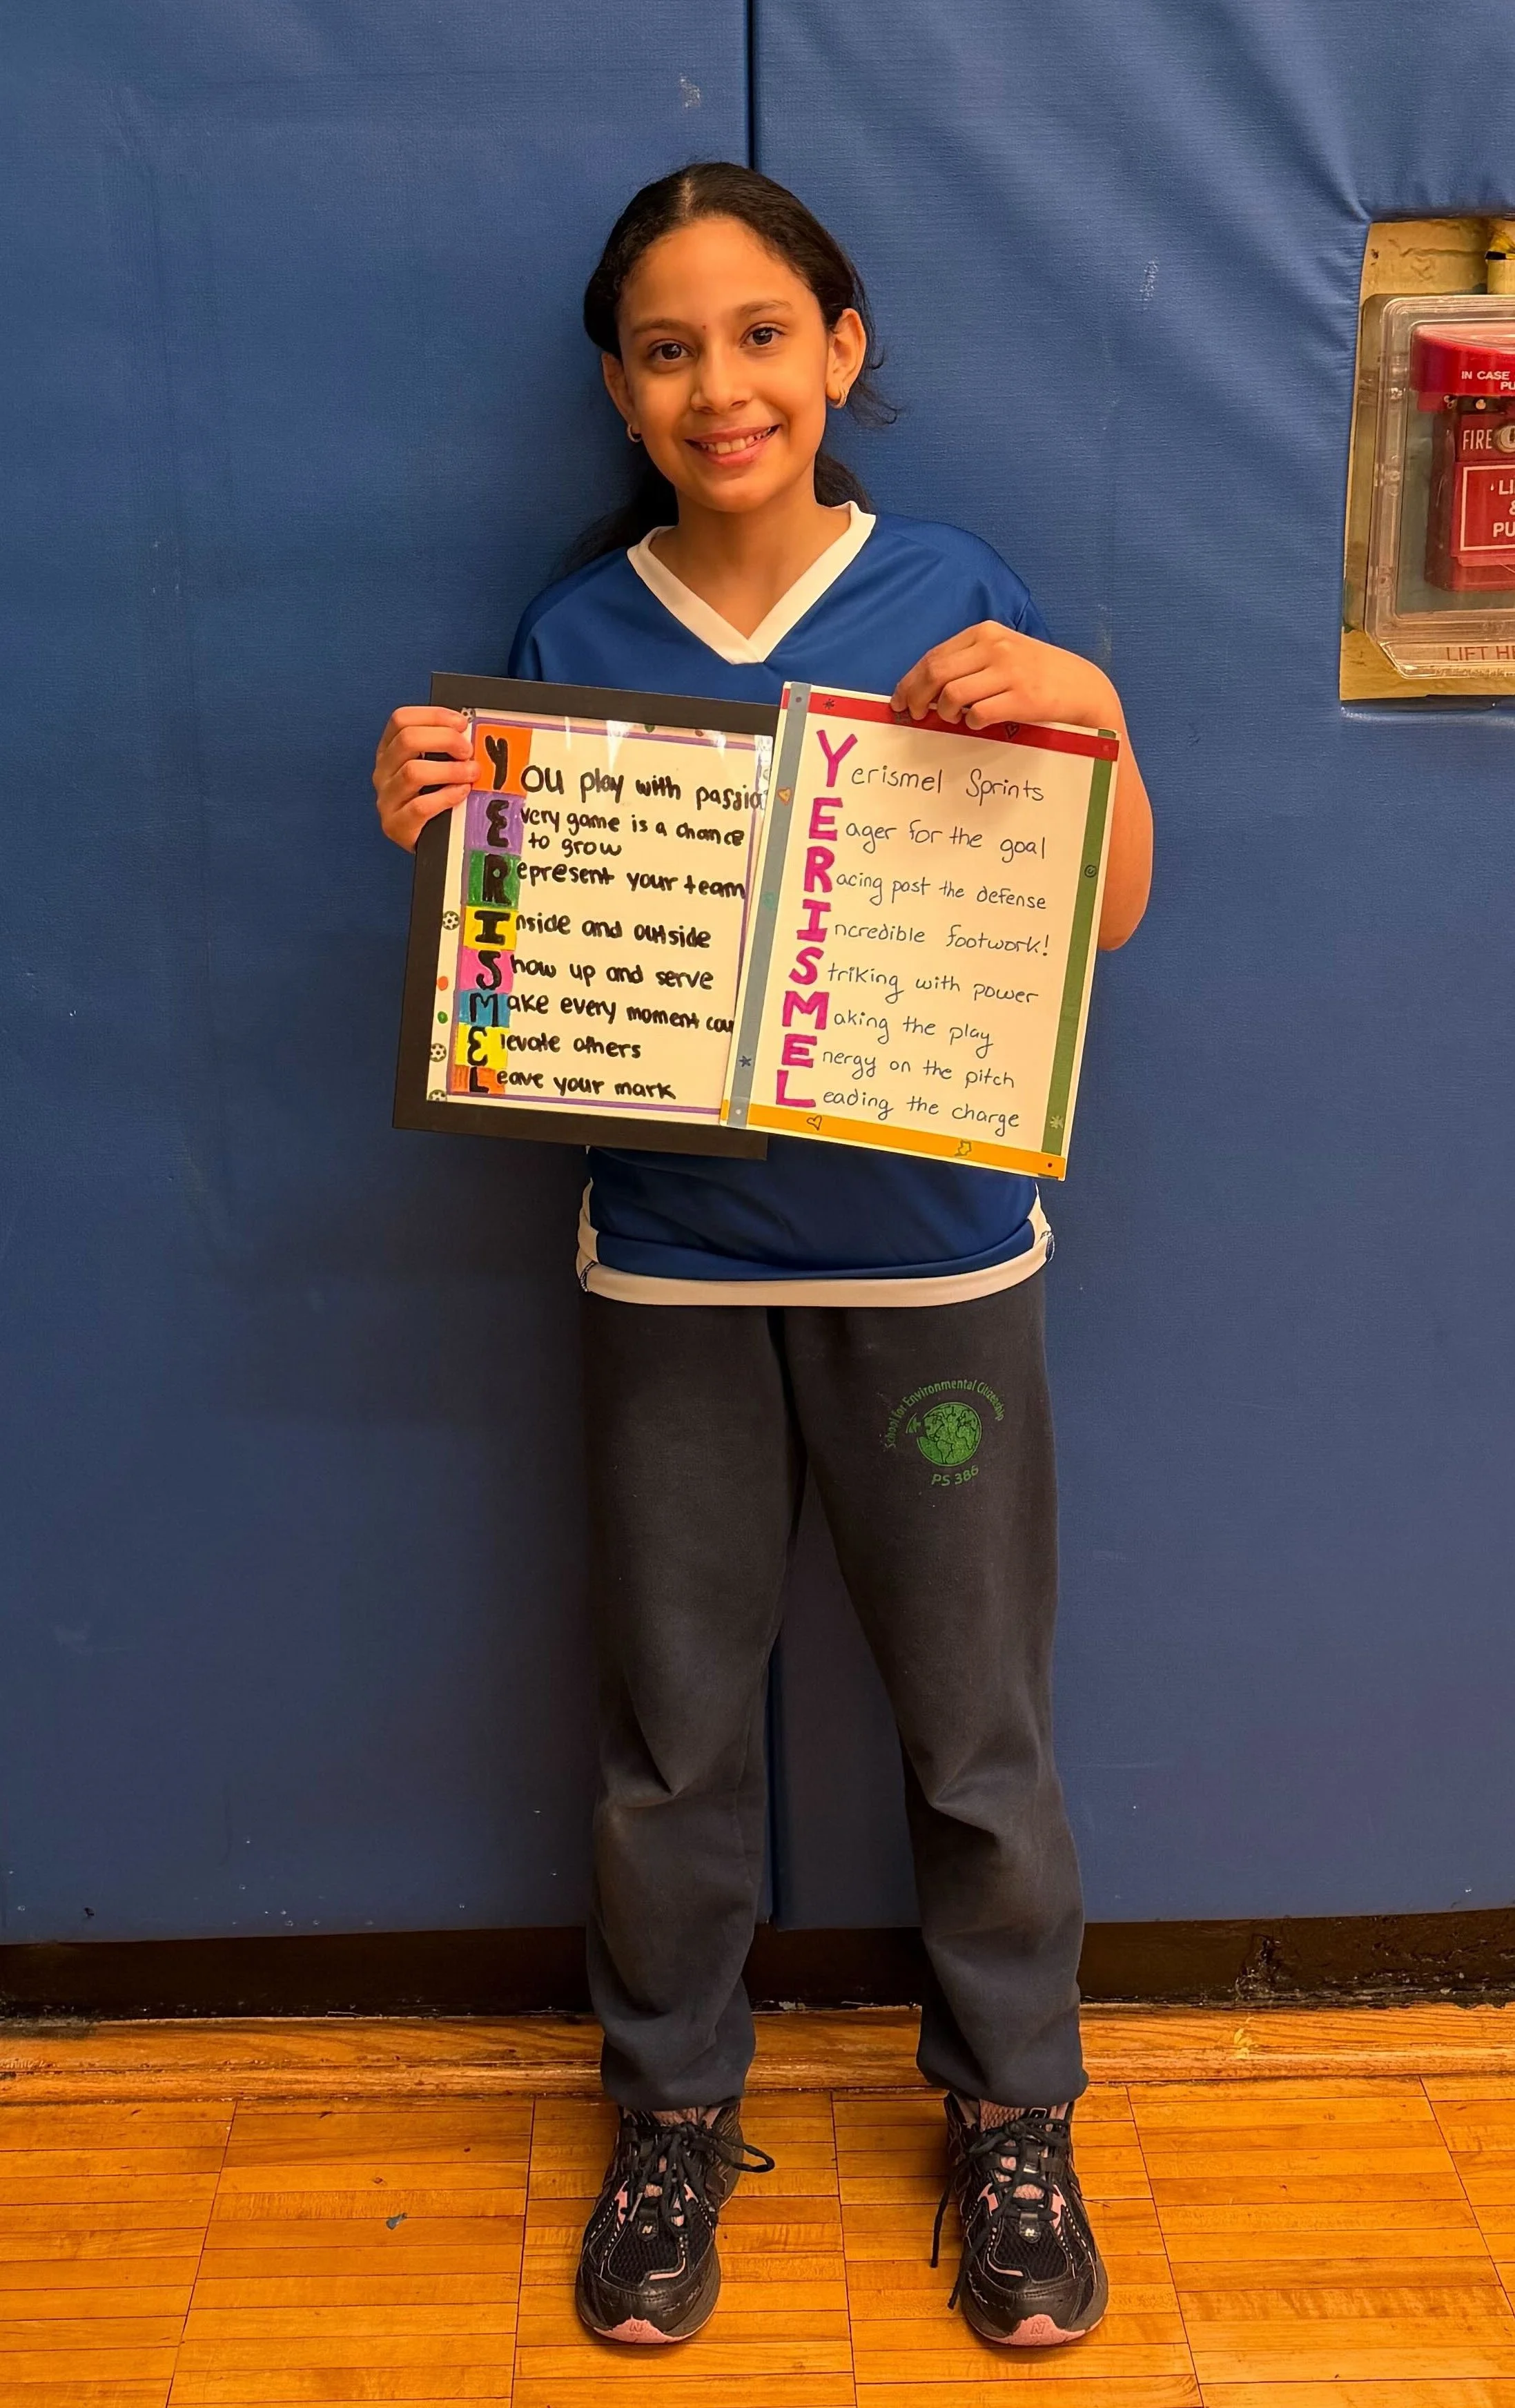 You play with passio
Every game is a chance
to grow
Represent your team
Inside and outside
Show up and serve
Make every moment cou
Elevate others
Leave your mark
Yerismel Sprints
Eager for the goal
Racing past the defense
Incredible footwork!
Striking with power
Making the play
Energy on the pitch
Leading the charge
IN CASE
PU
FIRE
LI
&
PU
LIFT HE
School for Environmental Citizenship
PS 386
N
N